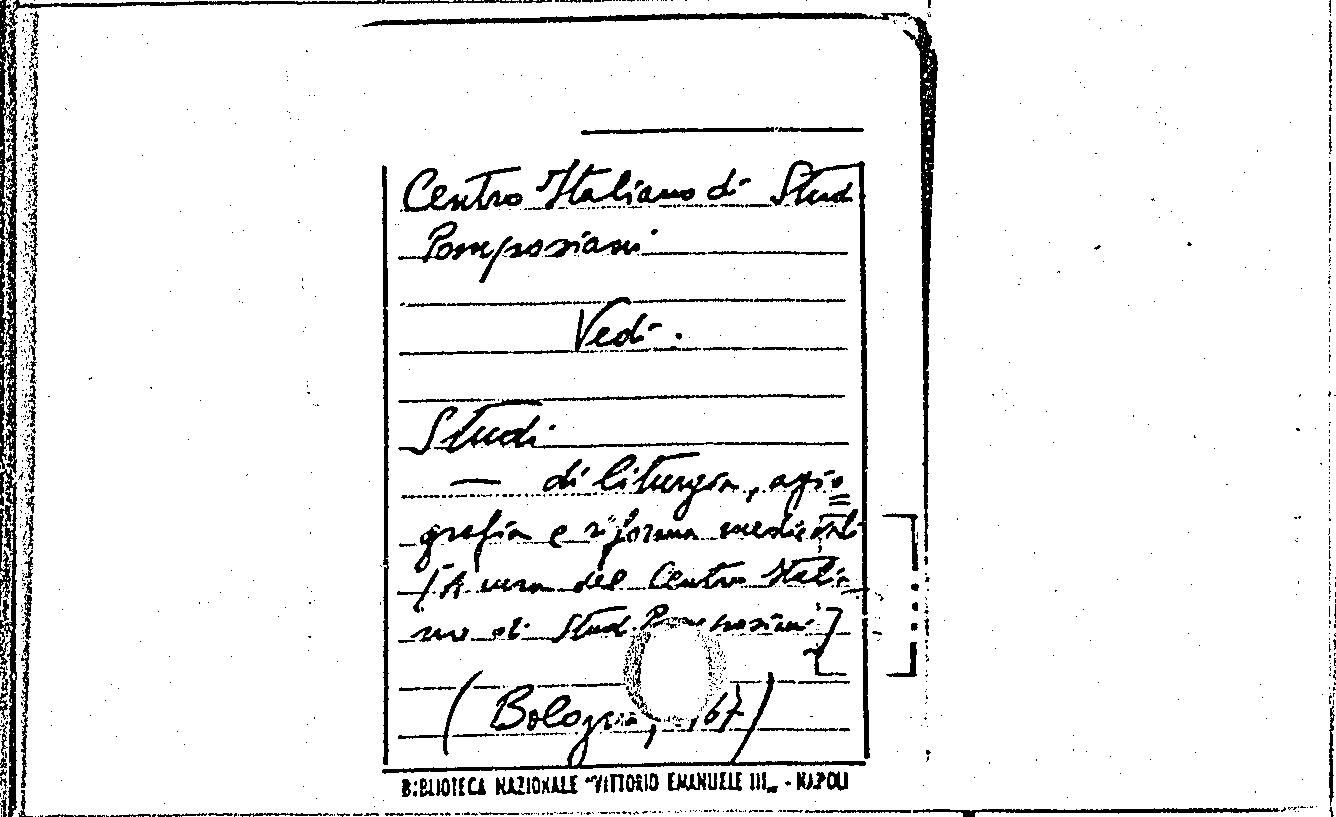 Centro Italiano di Studi
Pomposiani
Vedi.
Studi
— di liturgia, agio=
grafia e riforma medievali
[A cura del Centro Italia
no di Studi Pomposiani]
(Bologna, 67)
BIBLIOTECA NAZIONALE "VITTORIO EMANUELE III„ - NAPOLI